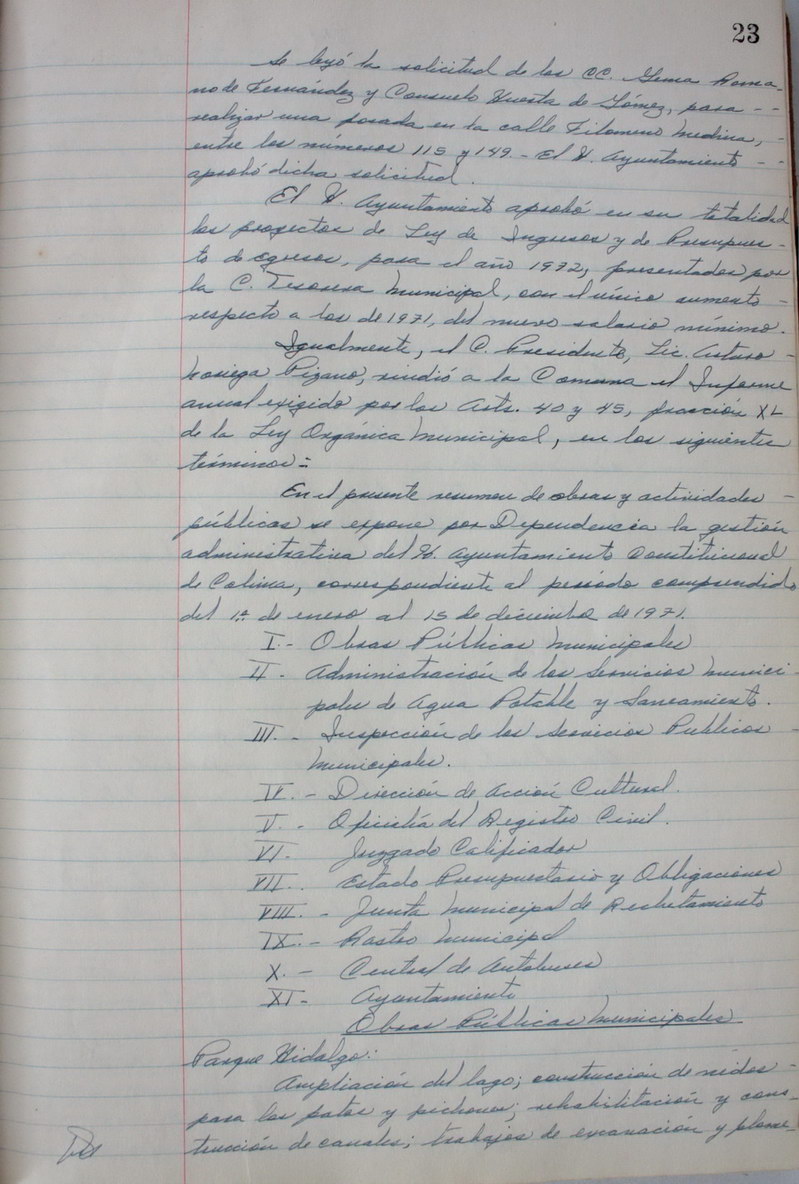 23
Se leyó la solicitud de las CC. Gema Roma-
no de Fernández y Consuelo Huerta de Gómez, para - -
realizar una posada en la calle Filomeno Medina, -
entre los números 115 y 149.- El H. Ayuntamiento - -
aprobó dicha solicitud.
El H. Ayuntamiento aprobó en su totalidad
los proyectos de Ley de Ingresos y de Presupues-
to de egresos, para el año 1972, presentados por
la C. Tesorera Municipal, con el único aumento -
respecto a los de 1971, del nuevo salario mínimo.
Igualmente, el C. Presidente, Lic. Arturo -
Noriega Pizano, rindió a la Comuna el Informe
anual exigido por los Arts. 40 y 45, fracción XL
de la Ley Orgánica Municipal, en los siguientes
términos:
En el presente resumen de obras y actividades -
públicas se expone por Dependencia la gestión
administrativa del H. Ayuntamiento Constitucional
de Colima, correspondiente al período comprendido
del 1º de enero al 15 de diciembre de 1971.
I.- Obras Públicas Municipales
II- Administración de los Servicios Munici-
pales de Agua Potable y Saneamiento.
III.- Inspección de los Servicios Publicos -
Municipales.
IV.- Dirección de Acción Cultural.
V.- Oficialía del Registro Civil.
VI- Juzgado Calificador
VII.. Estado Presupuestario y Obligaciones
VIII.- Junta Municipal de Reclutamiento
IX.- Rastro Municipal
X.- Central de Autobuses
XI- Ayuntamiento
Obras Públicas Municipales
Parque Hidalgo:
Ampliación del lago; construcción de nidos -
para los patos y pichones; rehabilitación y cons-
trucción de canales; trabajos de excavación y